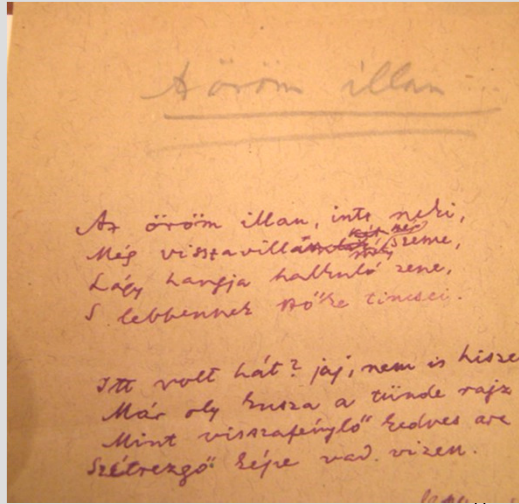 Az öröm illan
Az öröm illan, ints neki,
Még visszavillan két szeme,
Lágy hangja halkuló zene,
S lebbennek szőke tincsei.
Itt volt hát? jaj, nem is hisze
Már oly kusza a tünde rajz
Mint visszafénylő kedves arc
Szétrezgő képe vad vizen.